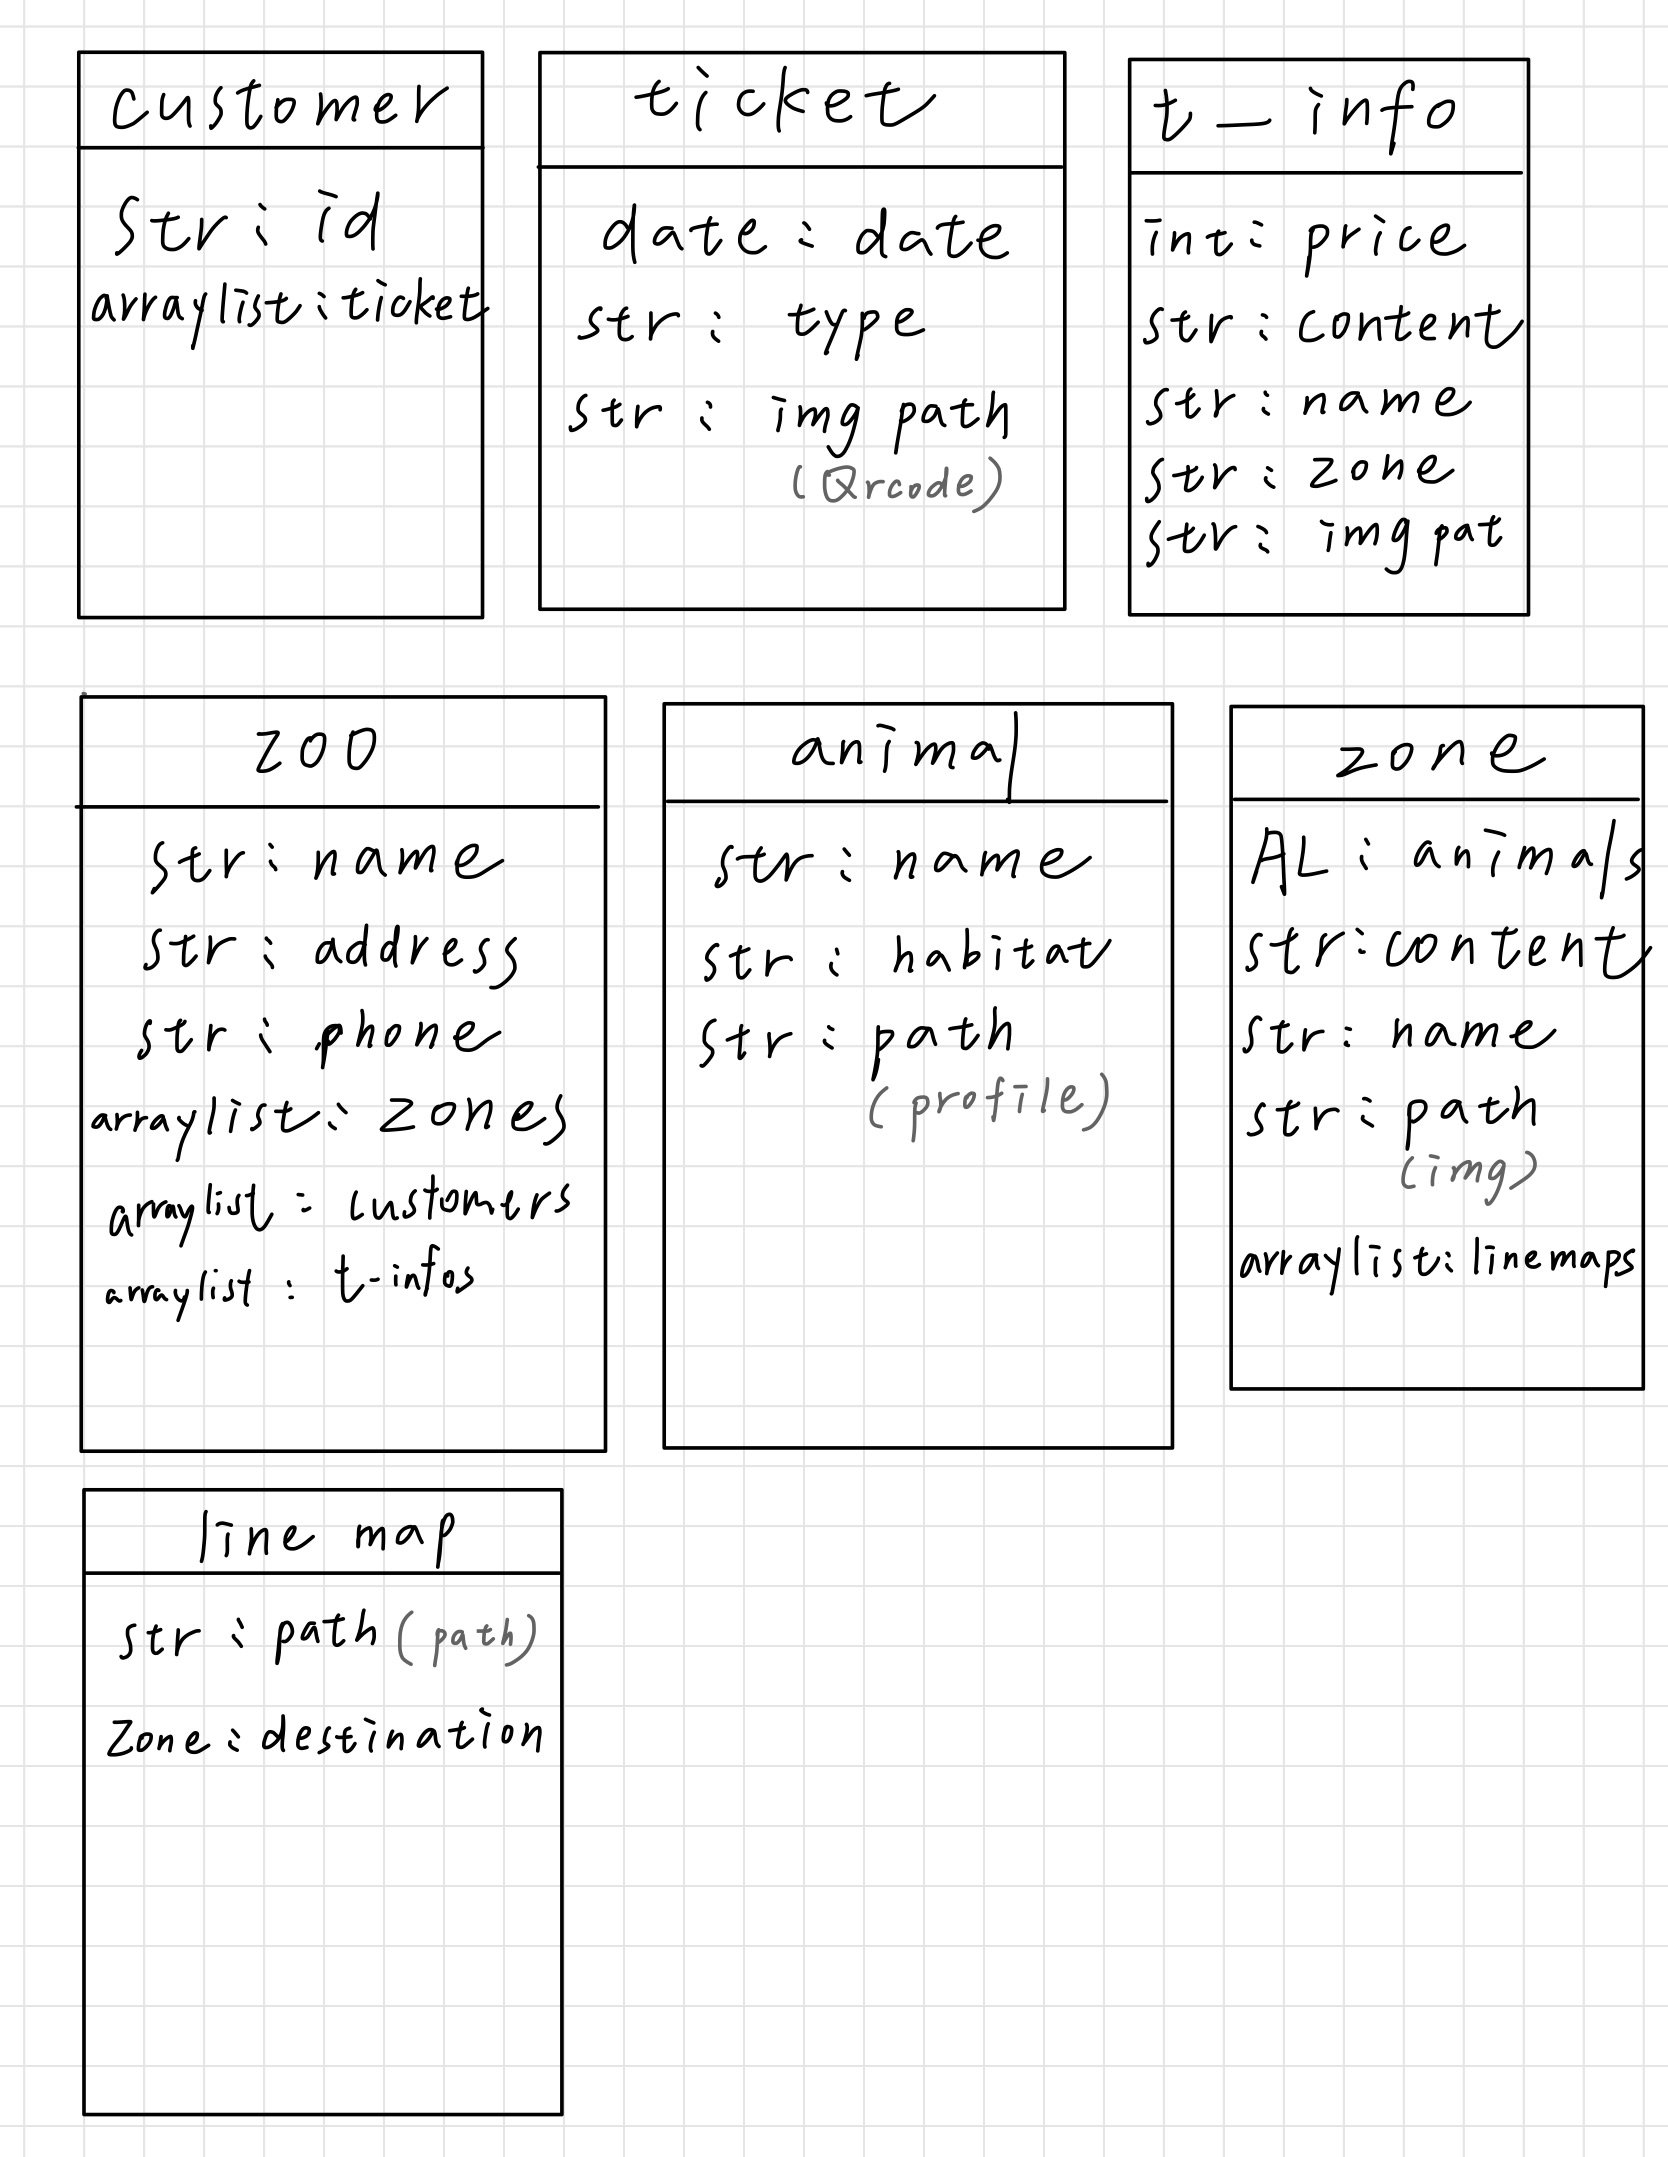 customer
str : id
arraylist : ticket
ticket
date : date
str : type
str : img path
(Qrcode)
t_info
int : price
str : content
str : name
str : zone
str : img pat
zoo
str : name
str : address
str : phone
arraylist : zones
arraylist : customers
arraylist : t-infos
animal
str : name
str : habitat
str : path
(profile)
zone
AL : animals
str : content
str : name
str : path
(img)
arraylist : linemaps
line map
str : path (path)
Zone : destination